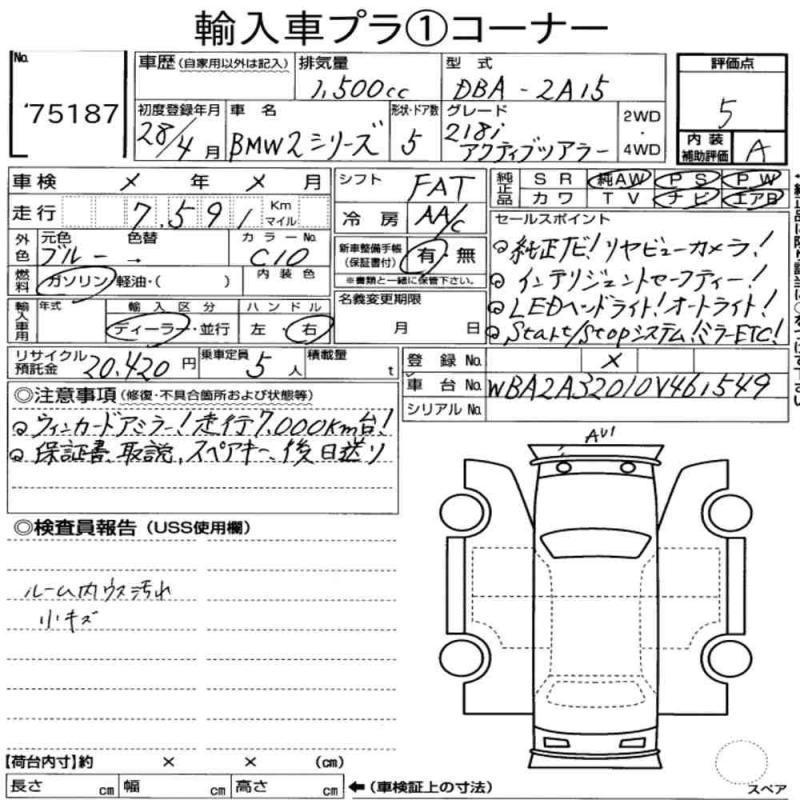 輸入車プラ①コーナー
No. 75187
車歴 (自家用以外は記入) 排気量 1,500cc 型式 DBA-2A15 評価点 5
初度登録年月 28/4月 車名 BMW2シリーズ 形状・ドア数 5 グレード 218i アクティブツアラー 2WD・4WD 内装補助評価 A
車検 × 年 × 月 シフト FAT 純正品 SR 純AW PS PW
カワ TV ナビ エアB
走行 7,591 Km マイル 冷房 AA/C セールスポイント
外色 元色 ブルー → 色替 カラーNo. C10 新車整備手帳(保証書付) 有・無 ※書類と一緒に保管下さい。
純正ナビ!リヤビューカメラ!
燃料 ガソリン・軽油・( ) 内装色
インテリジェントセーフティー!
輸入車用 年式 輸入区分 ディーラー・並行 ハンドル 左・右 名義変更期限 月 日
LEDヘッドライト!オートライト!
Start/Stopシステム!ミラーETC!
リサイクル預託金 20,420円 乗車定員 5人 積載量 t 登録No. ×
◎注意事項 (修復・不具合箇所および状態等) 車台No. WBA2A32010V461549
シリアルNo.
ウィンカードアミラー!走行7,000Km台!
保証書、取説、スペアキー、後日送り
AU1
◎検査員報告 (USS使用欄)
ルーム内ウス汚れ
小キズ
【荷台内寸】約 × × (cm)
長さ cm 幅 cm 高さ cm ←(車検証上の寸法)
スペア